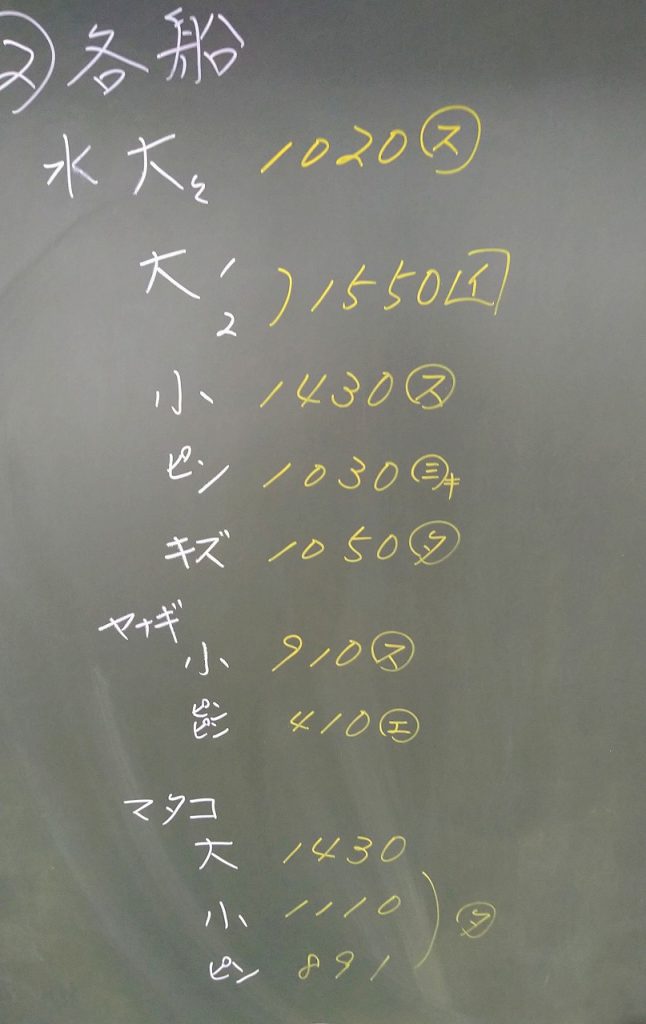 ②各船
水大 1020 ㋜
大 1
2 ) 1550 イ
小 1430 ㋜
ピン 1030 ㋯キ
キズ 1050 ㋟
ヤナギ
小 910 ㋜
ピンピン 410 ㋓
マタコ
大 1430
小 1110 ㋟
ピン 891